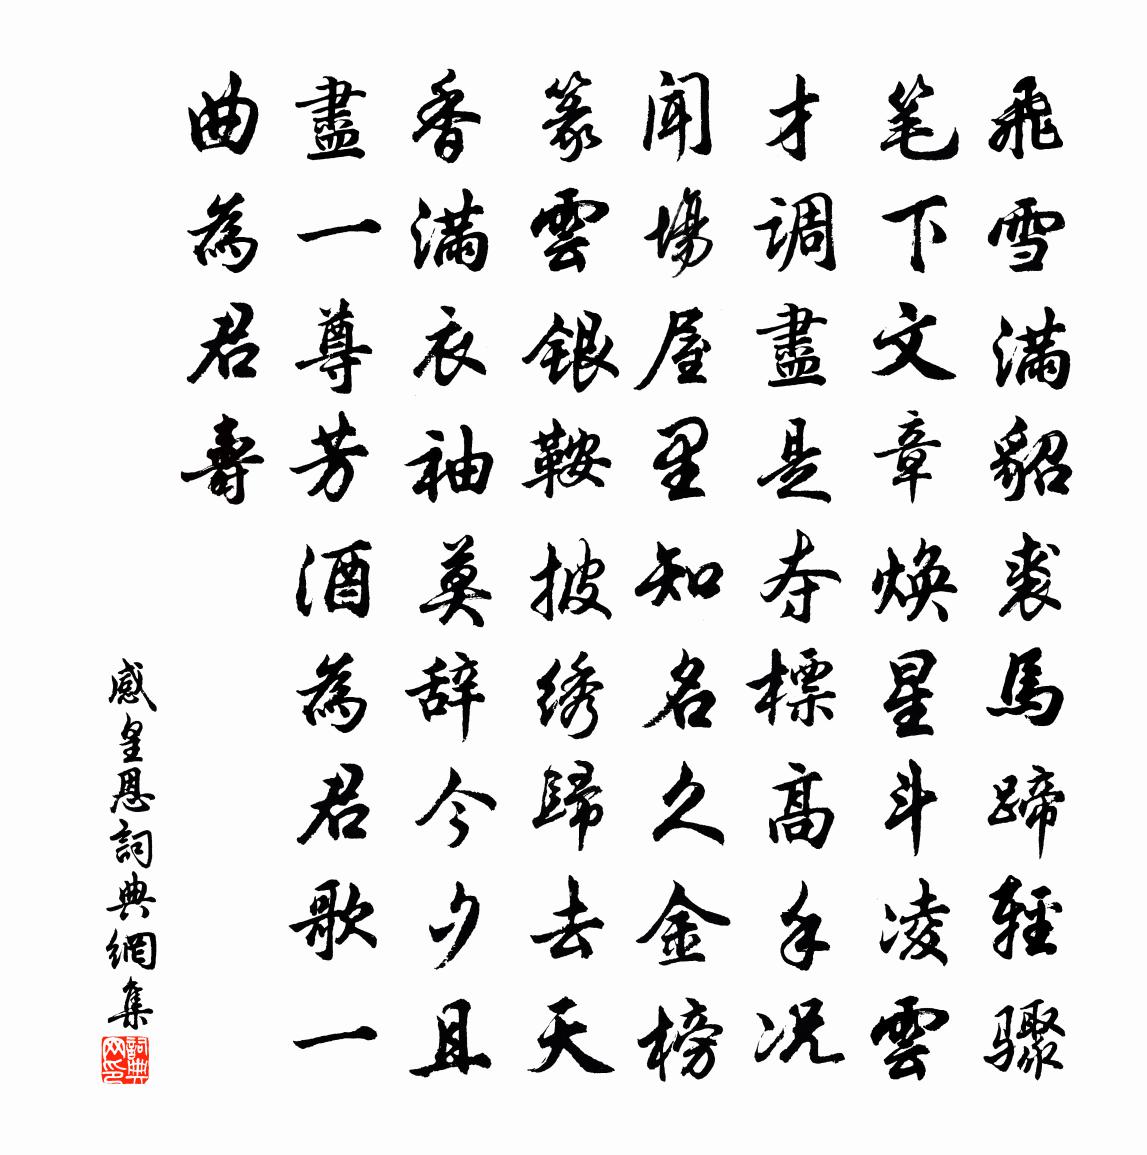 飛雪滿貂裘馬蹄輕驟
笔下文章煥星斗凌雲
才调盡是夺標高手况
闻場屋里知名久金榜
篆雲銀鞍披绣歸去天
香滿衣袖莫辞今夕且
盡一尊芳酒為君歌一
曲為君壽
感皇恩詞典網集
詞典网印